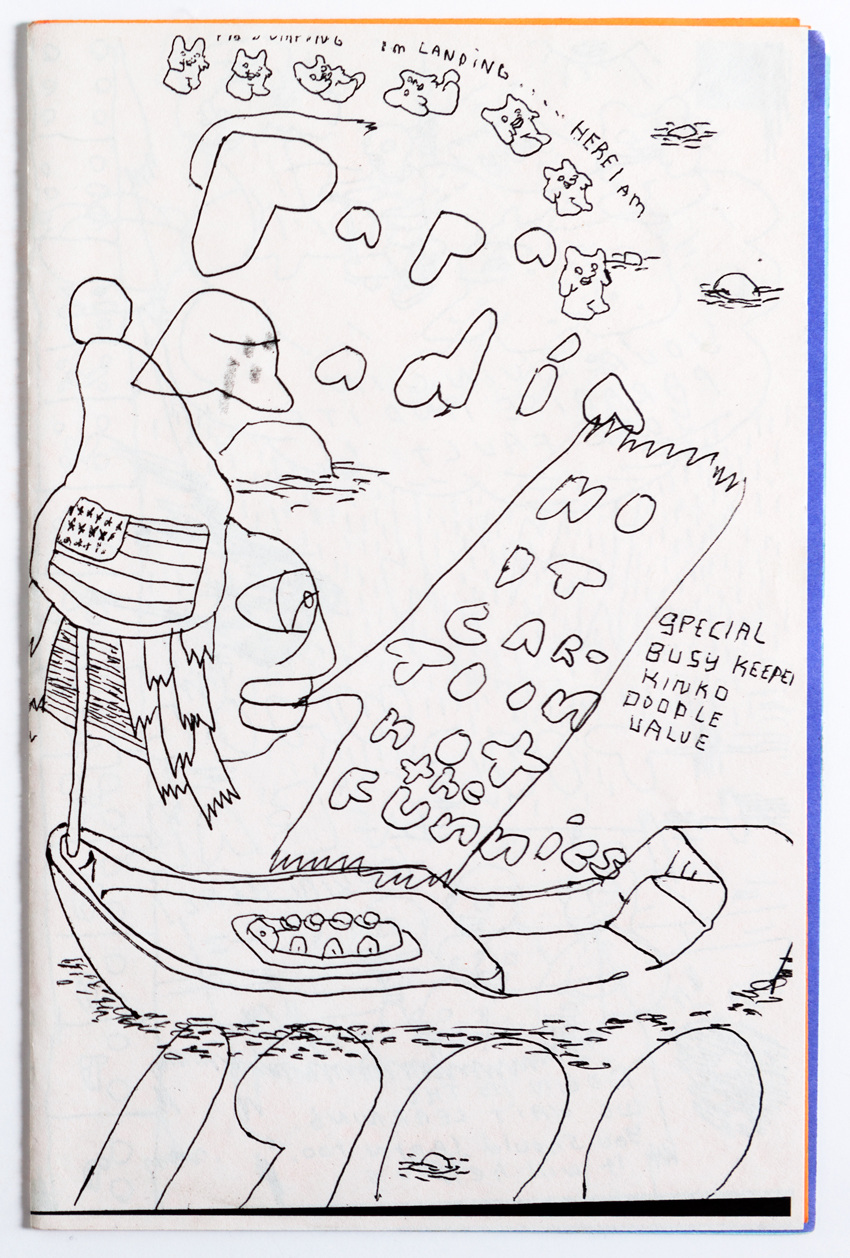 im LANDING.....
HERE I AM
PaPa
adi
NO
DT
CAR-
TOON
NOT
the
FUNNiES
SPECIAL
BUSY KEEPER
KINKO
DOODLE
VALUE